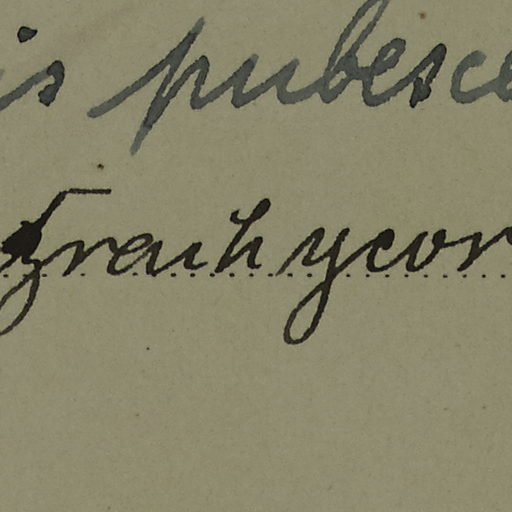 is pubesce
Trachycor